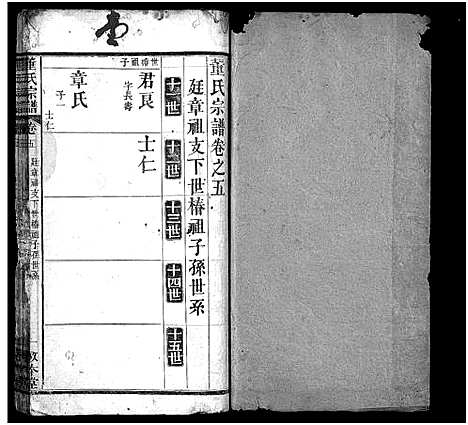 董氏宗譜卷之五
廷章祖支下世椿祖子孫世系
十一世
十二世
十三世
十四世
十五世
世椿祖子
君良
字長壽
士仁
章氏
子一
士仁
董氏宗譜
卷五
廷章祖支下世椿祖子孫世系
敦本堂